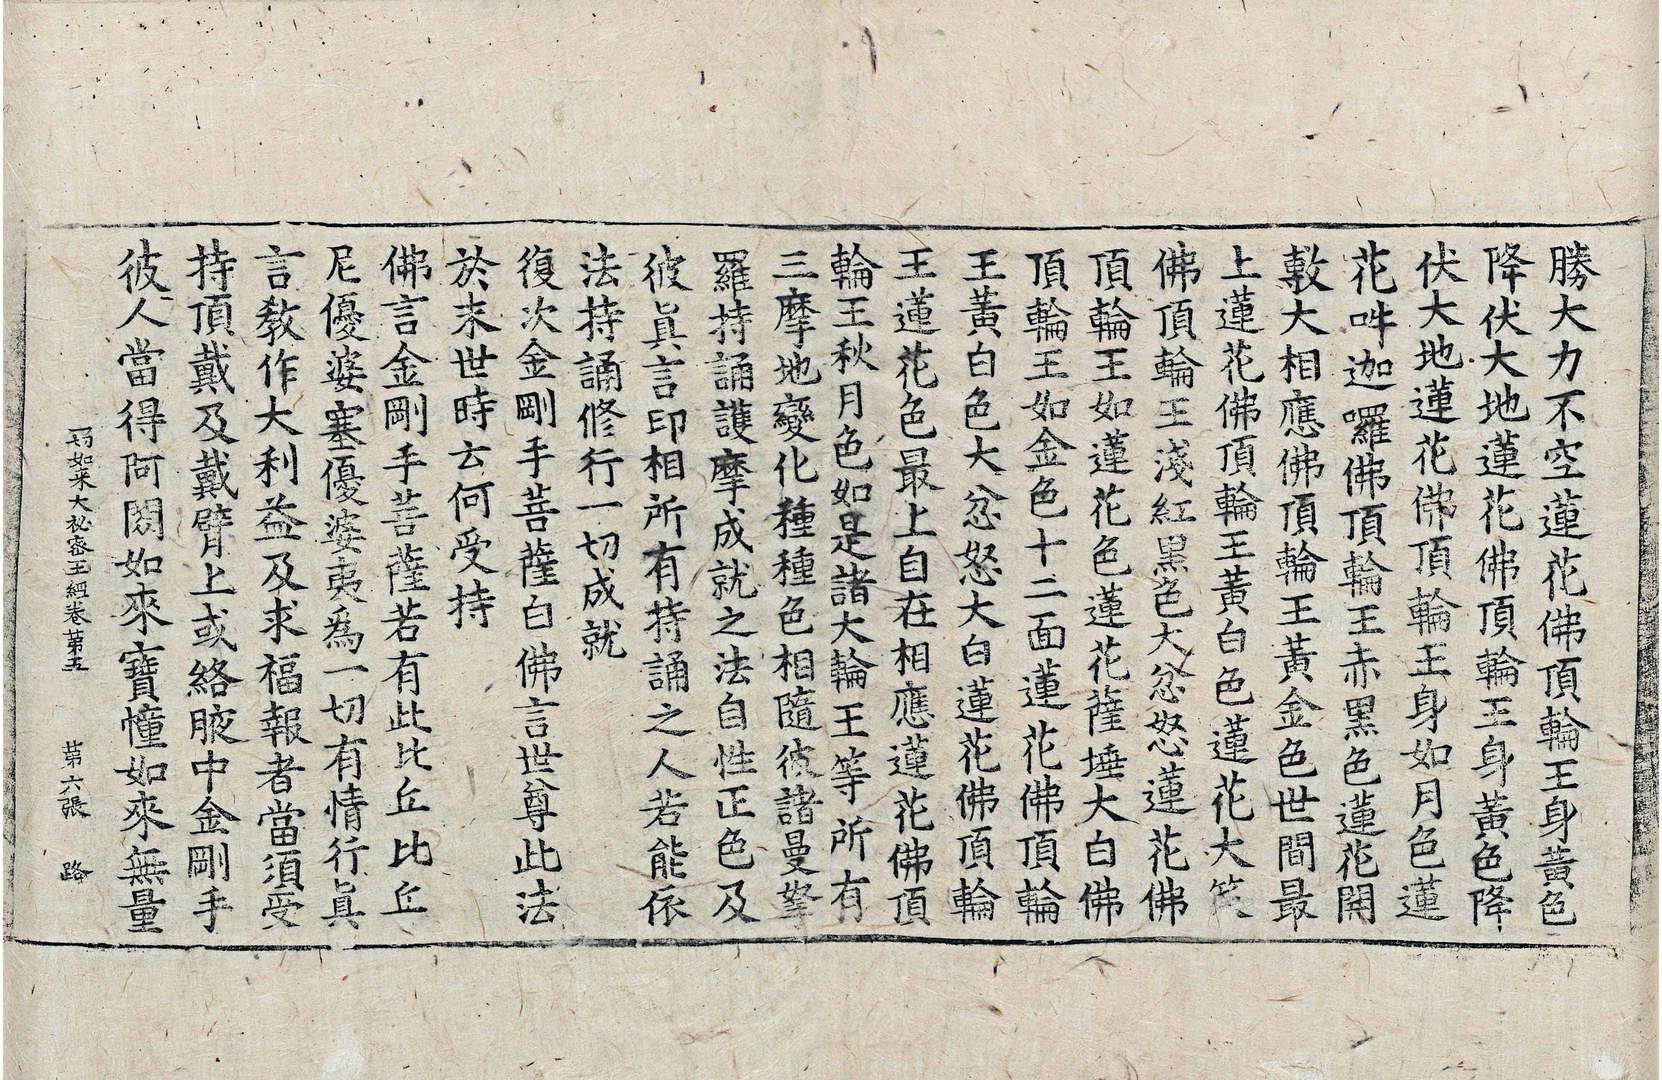 勝大力不空蓮花佛頂輪王身黃色
降伏大地蓮花佛頂輪王身黃色降
伏大地蓮花佛頂輪王身如月色蓮
花吽迦囉佛頂輪王赤黑色蓮花開
敷大相應佛頂輪王黃金色世間最
上蓮花佛頂輪王黃白色蓮花大笑
佛頂輪王淺紅黑色大忿怒蓮花佛
頂輪王如蓮花色蓮花薩埵大白佛
頂輪王如金色十二面蓮花佛頂輪
王黃白色大忿怒大白蓮花佛頂輪
王蓮花色最上自在相應蓮花佛頂
輪王秋月色如是諸大輪王等所有
三摩地變化種種色相隨彼諸曼拏
羅持誦護摩成就之法自性正色及
彼眞言印相所有持誦之人若能依
法持誦修行一切成就
復次金剛手菩薩白佛言世尊此法
於末世時云何受持
佛言金剛手菩薩若有此比丘比丘
尼優婆塞優婆夷爲一切有情行眞
言教作大利益及求福報者當須受
持頂戴及戴臂上或絡腋中金剛手
彼人當得阿閦如來寶幢如來無量
一切如来大祕密王經卷第五　第六張　路